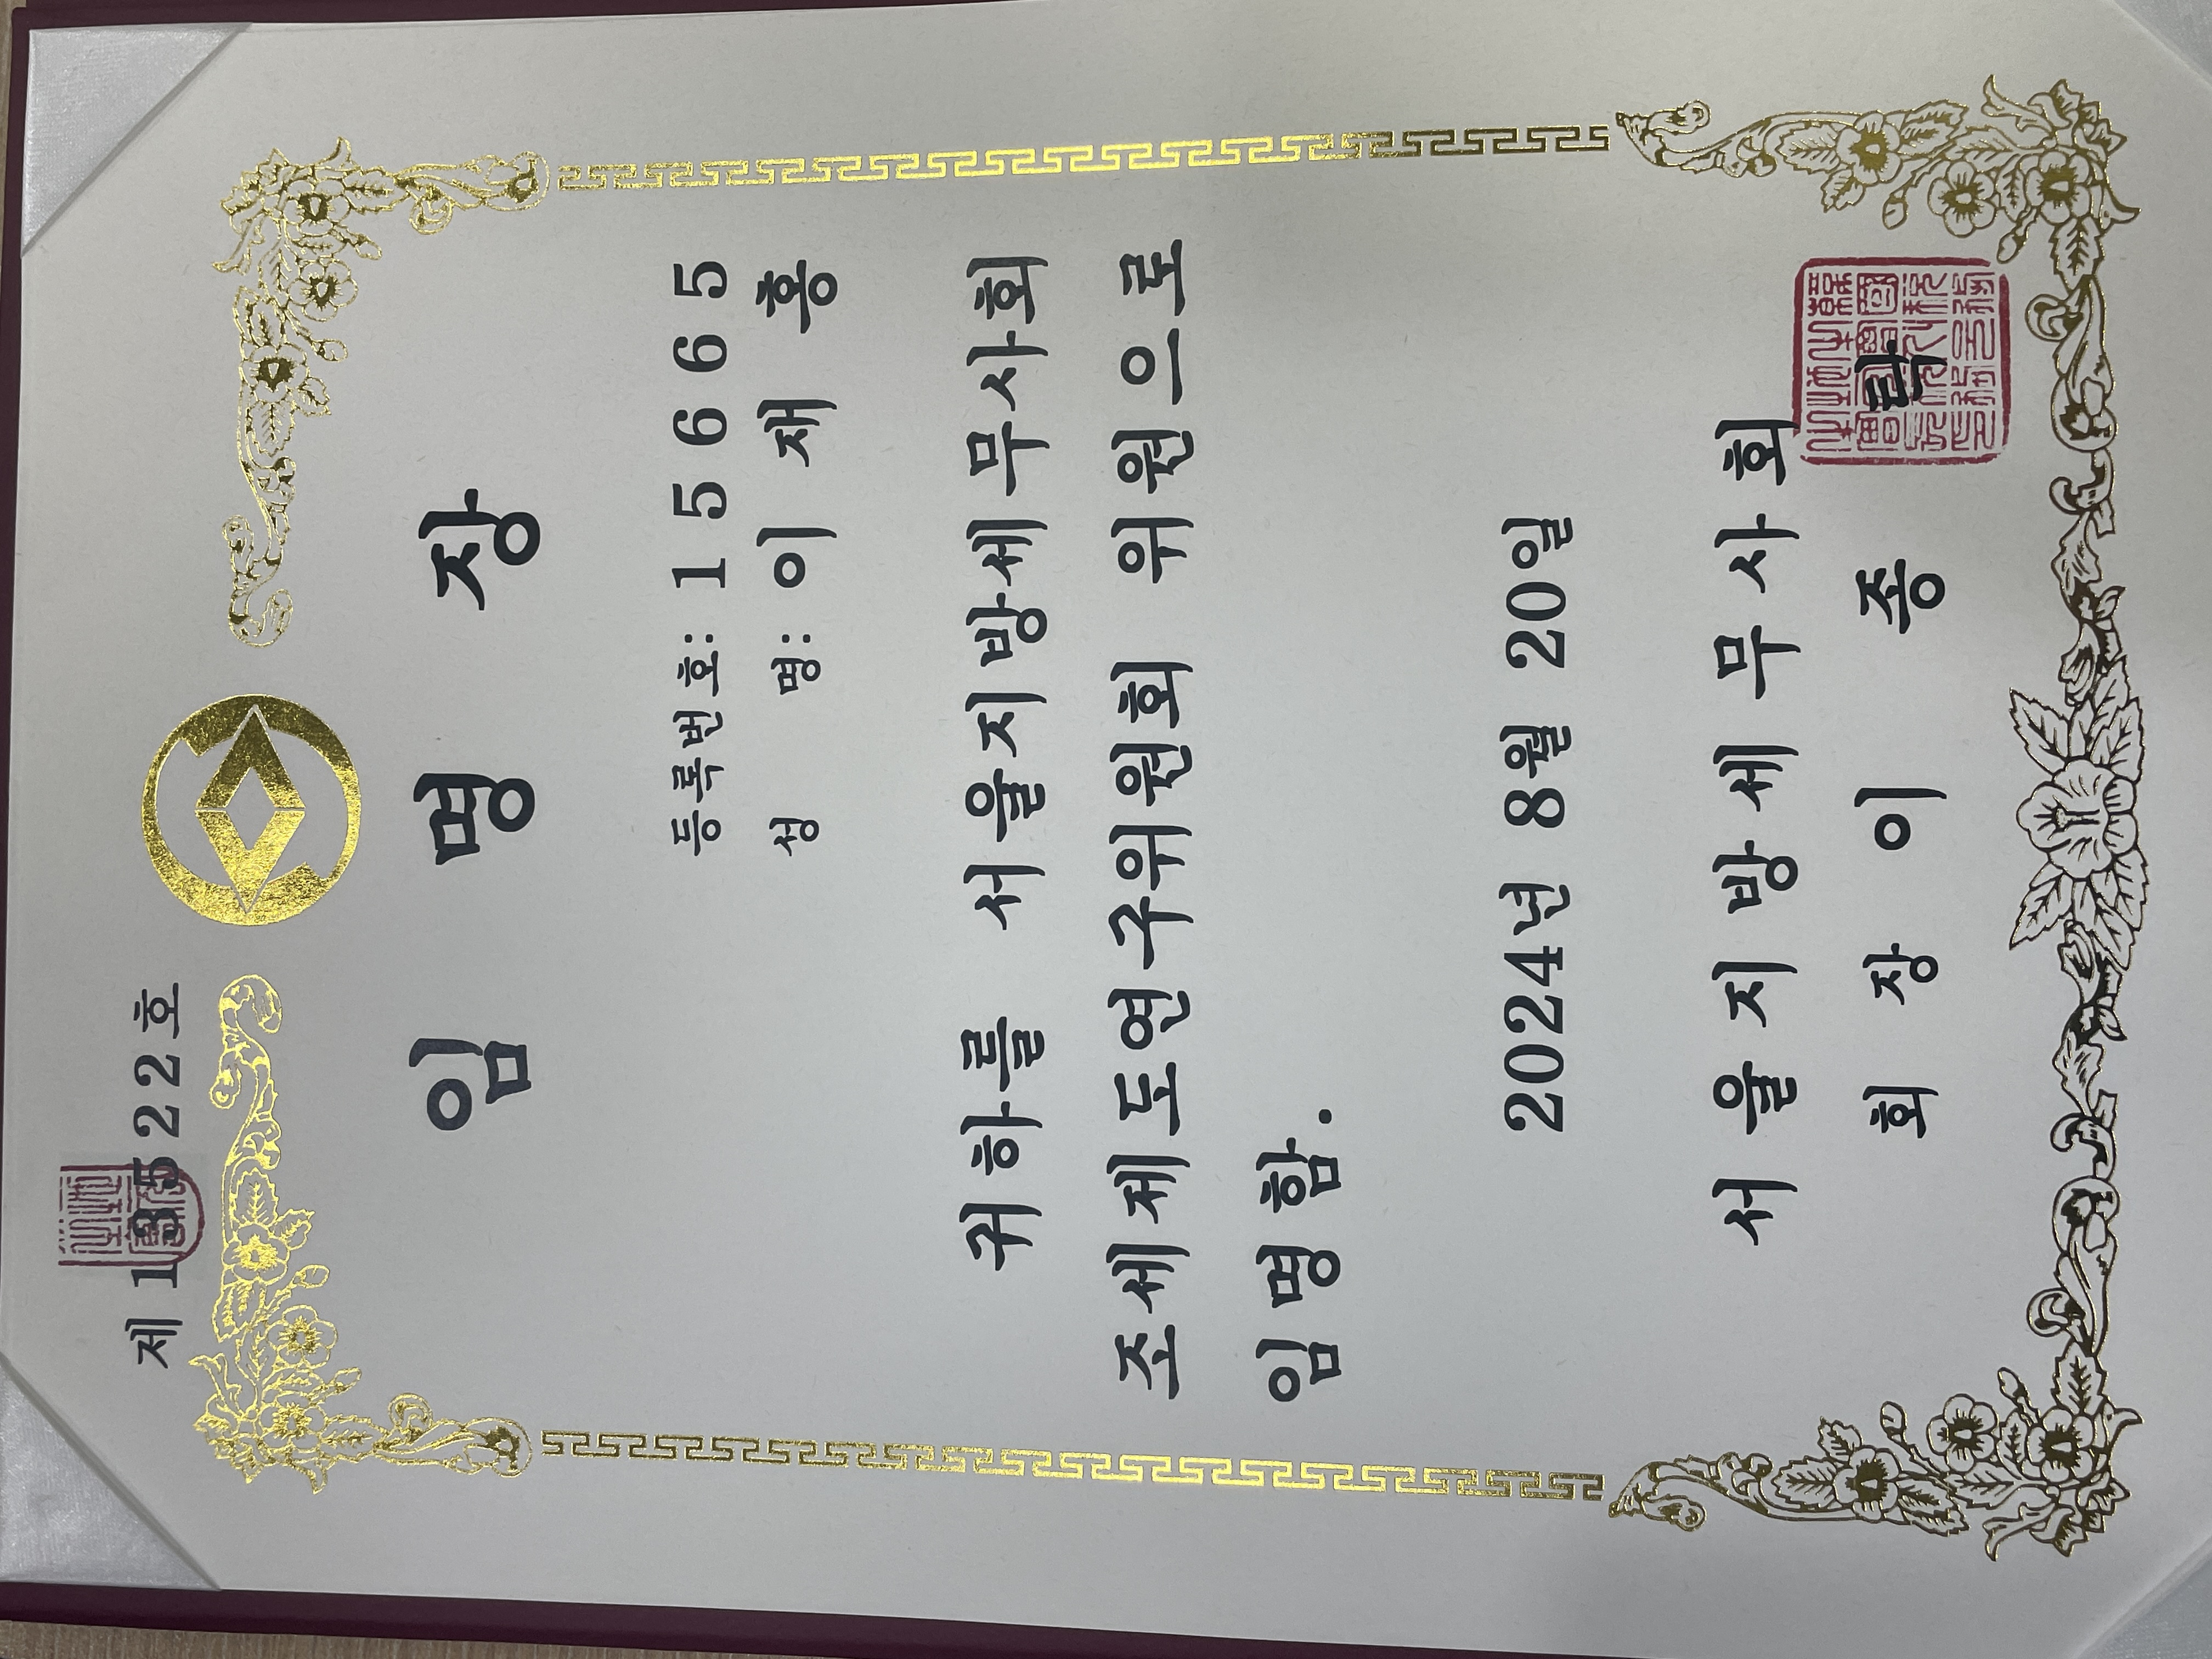 제 13522호
임 명 장
등록번호: 1 5 6 6 5
성 명: 이 재 홍
귀하를 서울지방세무사회
조세제도연구위원회 위원으로
임명함.
2024년 8월 20일
서 울 지 방 세 무 사 회
회 장 이 종 탁